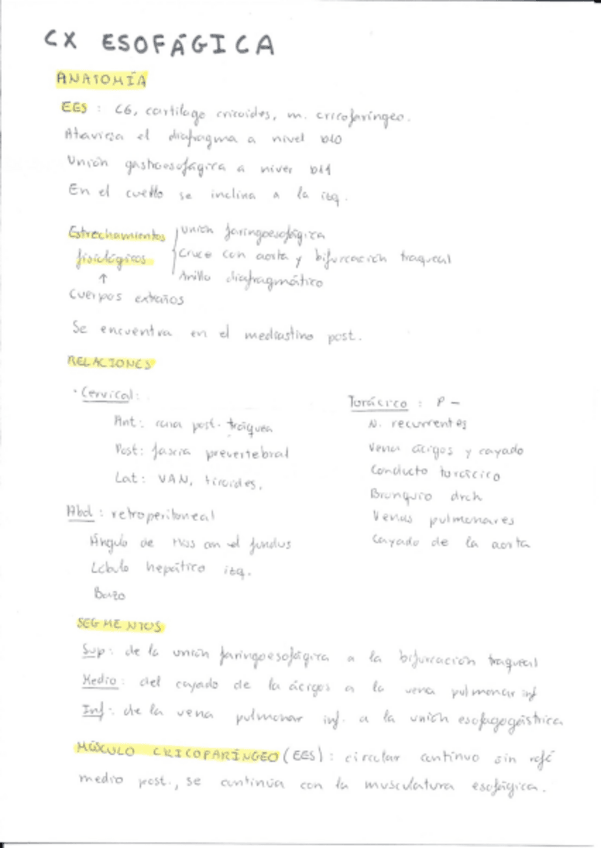 CX ESOFÁGICA
ANATOMÍA
EES : C6, cartílago cricoides, m. cricofaríngeo.
Atraviesa el diafragma a nivel D10
Unión gastroesofágica a nivel D11
En el cuello se inclina a la izq.
Estrechamientos fisiológicos
Unión faringoesofágica
Cruce con aorta y bifurcación traqueal
Anillo diafragmático
↑
Cuerpos extraños
Se encuentra en el mediastino post.
RELACIONES
· Cervical:
Ant: cara post. tráquea
Post: fascia prevertebral
Lat: VAN, tiroides.
Abd : retroperitoneal
Ángulo de His con el fundus
Lóbulo hepático izq.
Bazo
Torácico : P –
N. recurrentes
Vena ácigos y cayado
Conducto torácico
Bronquio drch
Venas pulmonares
Cayado de la aorta
SEGMENTOS
Sup: de la unión faringoesofágica a la bifurcación traqueal
Medio: del cayado de la ácigos a la vena pulmonar inf
Inf: de la vena pulmonar inf. a la unión esofagogástrica
MÚSCULO CRICOFARÍNGEO (EES) : circular continuo sin rafé
medio post., se continúa con la musculatura esofágica.